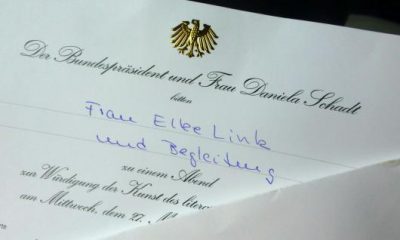 Der Bundespräsident und Frau Daniela Schadt
bitten
Frau Elke Link
und Begleitung
zu einem Abend
zur Würdigung der Kunst des
am Mittwoch, dem 27.